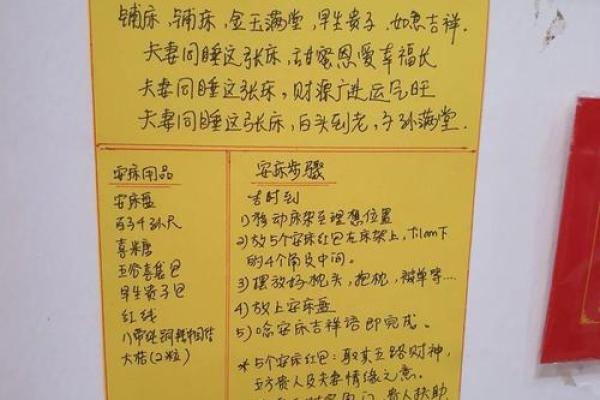 铺床,铺床,金玉满堂,早生贵子,如意吉祥.
夫妻同睡这张床,甜蜜恩爱幸福长
夫妻同睡这张床,财源广进运气旺
夫妻同睡这张床,白头到老,子孙满堂.
安床用品
安床盘
百子千孙尺
喜糖
五谷喜袋包
早生贵子包
红线
大桔(2粒)
安床步骤
吉时到
1)移动床架至理想位置
2)放5个安床红包在床架上,
的4个角及中间。
3)摆放好枕头,抱枕,被单等....
4)放上安床盘
5)念安床吉祥语即完成。
*5个安床红包:取其五路财神,
五方贵人及夫妻情缘之意。